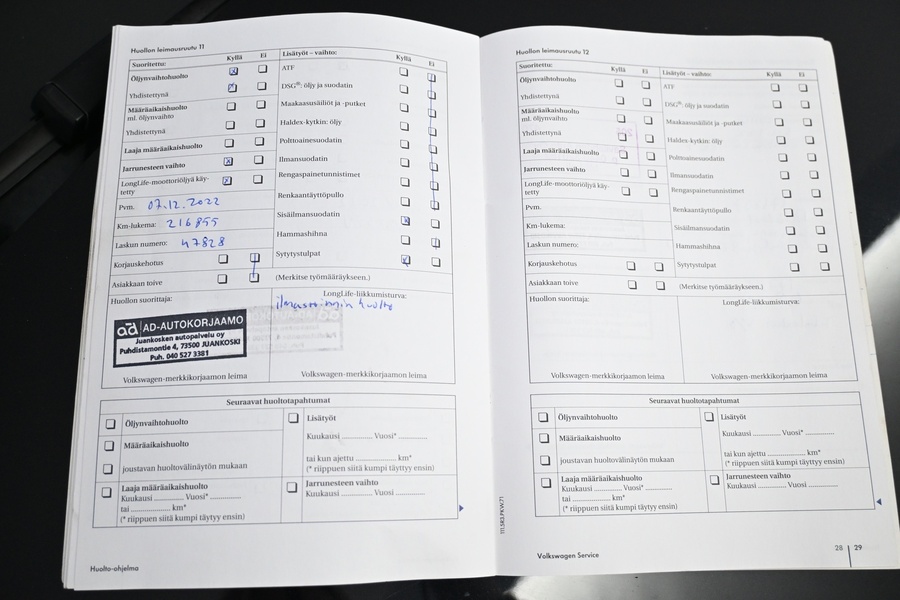 Huollon leimausruutu 11
Suoritettu: Kyllä Ei
Öljynvaihtohuolto
Yhdistettynä
Määräaikaishuolto
ml. öljynvaihto
Yhdistettynä
Laaja määräaikaishuolto
Jarrunesteen vaihto
LongLife-moottoriöljyä käy-
tetty
Pvm. 07.12.2022
Km-lukema: 216855
Laskun numero: 47828
Korjauskehotus
Asiakkaan toive
Lisätyöt – vaihto: Kyllä Ei
ATF
DSG®: öljy ja suodatin
Maakaasusäiliöt ja -putket
Haldex-kytkin: öljy
Polttoainesuodatin
Ilmansuodatin
Rengaspainetunnistimet
Renkaantäyttöpullo
Sisäilmansuodatin
Hammashihna
Sytytystulpat
(Merkitse työmääräykseen.)
Huollon suorittaja:
ad AD-AUTOKORJAAMO
Juankosken autopalvelu oy
Puhdistamontie 4, 73500 JUANKOSKI
Puh. 040 527 3381
Volkswagen-merkkikorjaamon leima
LongLife-liikkumisturva:
ilmastoinnin huolto
Volkswagen-merkkikorjaamon leima
Seuraavat huoltotapahtumat
Öljynvaihtohuolto
Määräaikaishuolto
joustavan huoltovälinäytön mukaan
Laaja määräaikaishuolto
Kuukausi .............. Vuosi* ..............
tai .................... km*
(* riippuen siitä kumpi täytyy ensin)
Lisätyöt
Kuukausi .............. Vuosi* ..............
tai kun ajettu .................. km*
(* riippuen siitä kumpi täytyy ensin)
Jarrunesteen vaihto
Kuukausi .............. Vuosi ..............
Huolto-ohjelma
Huollon leimausruutu 12
Suoritettu: Kyllä Ei
Öljynvaihtohuolto
Yhdistettynä
Määräaikaishuolto
ml. öljynvaihto
Yhdistettynä
Laaja määräaikaishuolto
Jarrunesteen vaihto
LongLife-moottoriöljyä käy-
tetty
Pvm.
Km-lukema:
Laskun numero:
Korjauskehotus
Asiakkaan toive
Lisätyöt – vaihto: Kyllä Ei
ATF
DSG®: öljy ja suodatin
Maakaasusäiliöt ja -putket
Haldex-kytkin: öljy
Polttoainesuodatin
Ilmansuodatin
Rengaspainetunnistimet
Renkaantäyttöpullo
Sisäilmansuodatin
Hammashihna
Sytytystulpat
(Merkitse työmääräykseen.)
Huollon suorittaja:
Volkswagen-merkkikorjaamon leima
LongLife-liikkumisturva:
Volkswagen-merkkikorjaamon leima
Seuraavat huoltotapahtumat
Öljynvaihtohuolto
Määräaikaishuolto
joustavan huoltovälinäytön mukaan
Laaja määräaikaishuolto
Kuukausi .............. Vuosi* ..............
tai .................... km*
(* riippuen siitä kumpi täytyy ensin)
Lisätyöt
Kuukausi .............. Vuosi* ..............
tai kun ajettu .................. km*
(* riippuen siitä kumpi täytyy ensin)
Jarrunesteen vaihto
Kuukausi .............. Vuosi ..............
Volkswagen Service
28 29